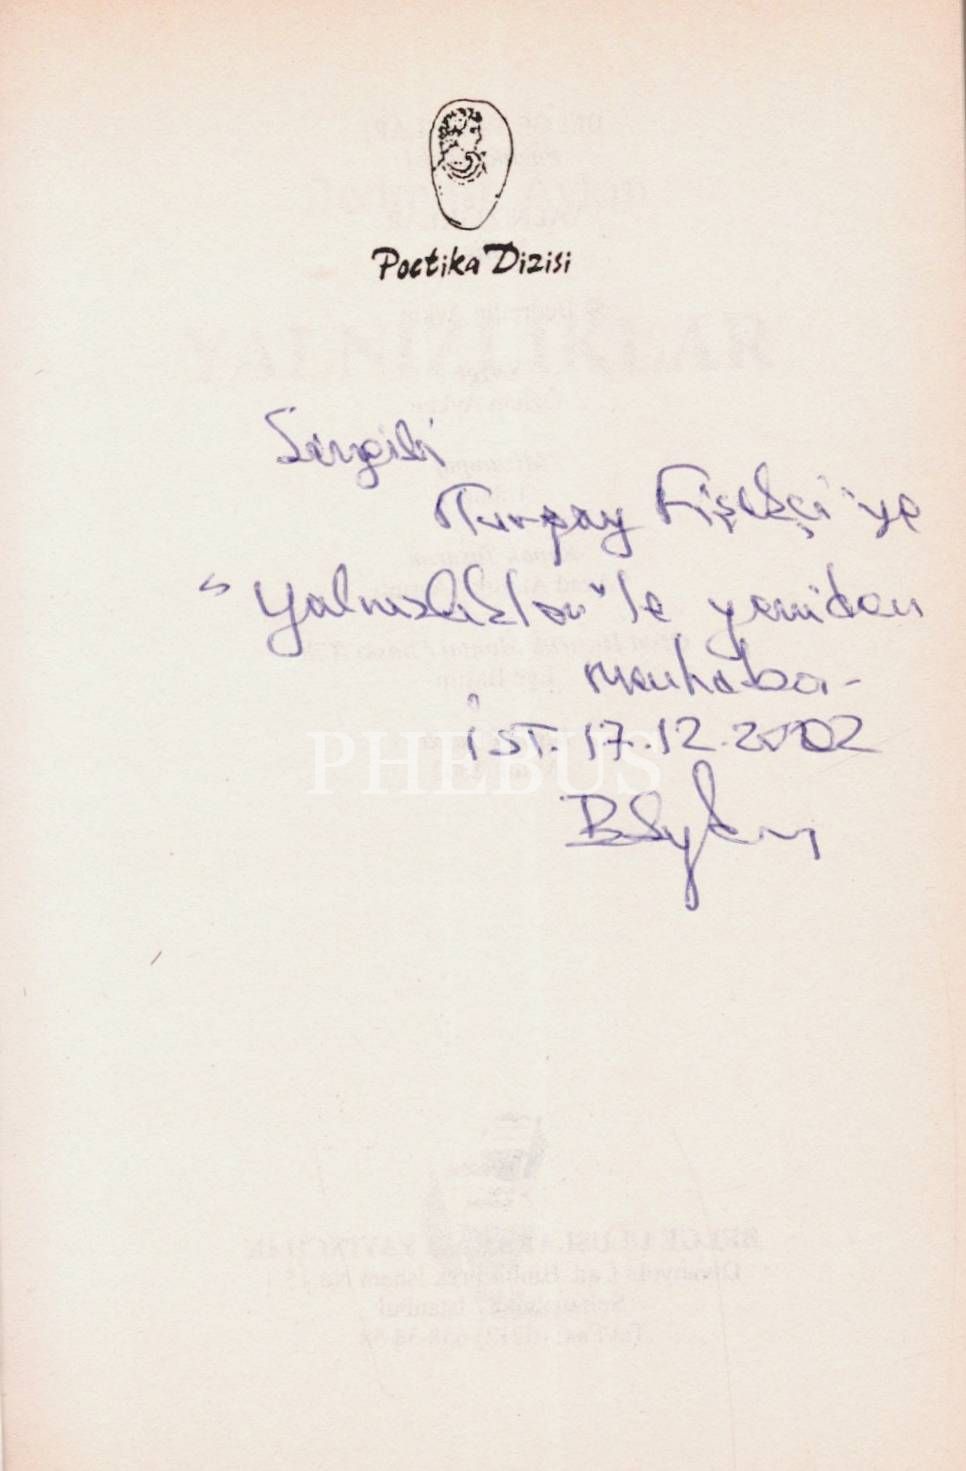 Poetika Dizisi
Sevgili
Turgay Fişekçi'ye
"Yalnızlıklar"la yeniden
merhaba-
İST. 17.12.2002
PHEBUS